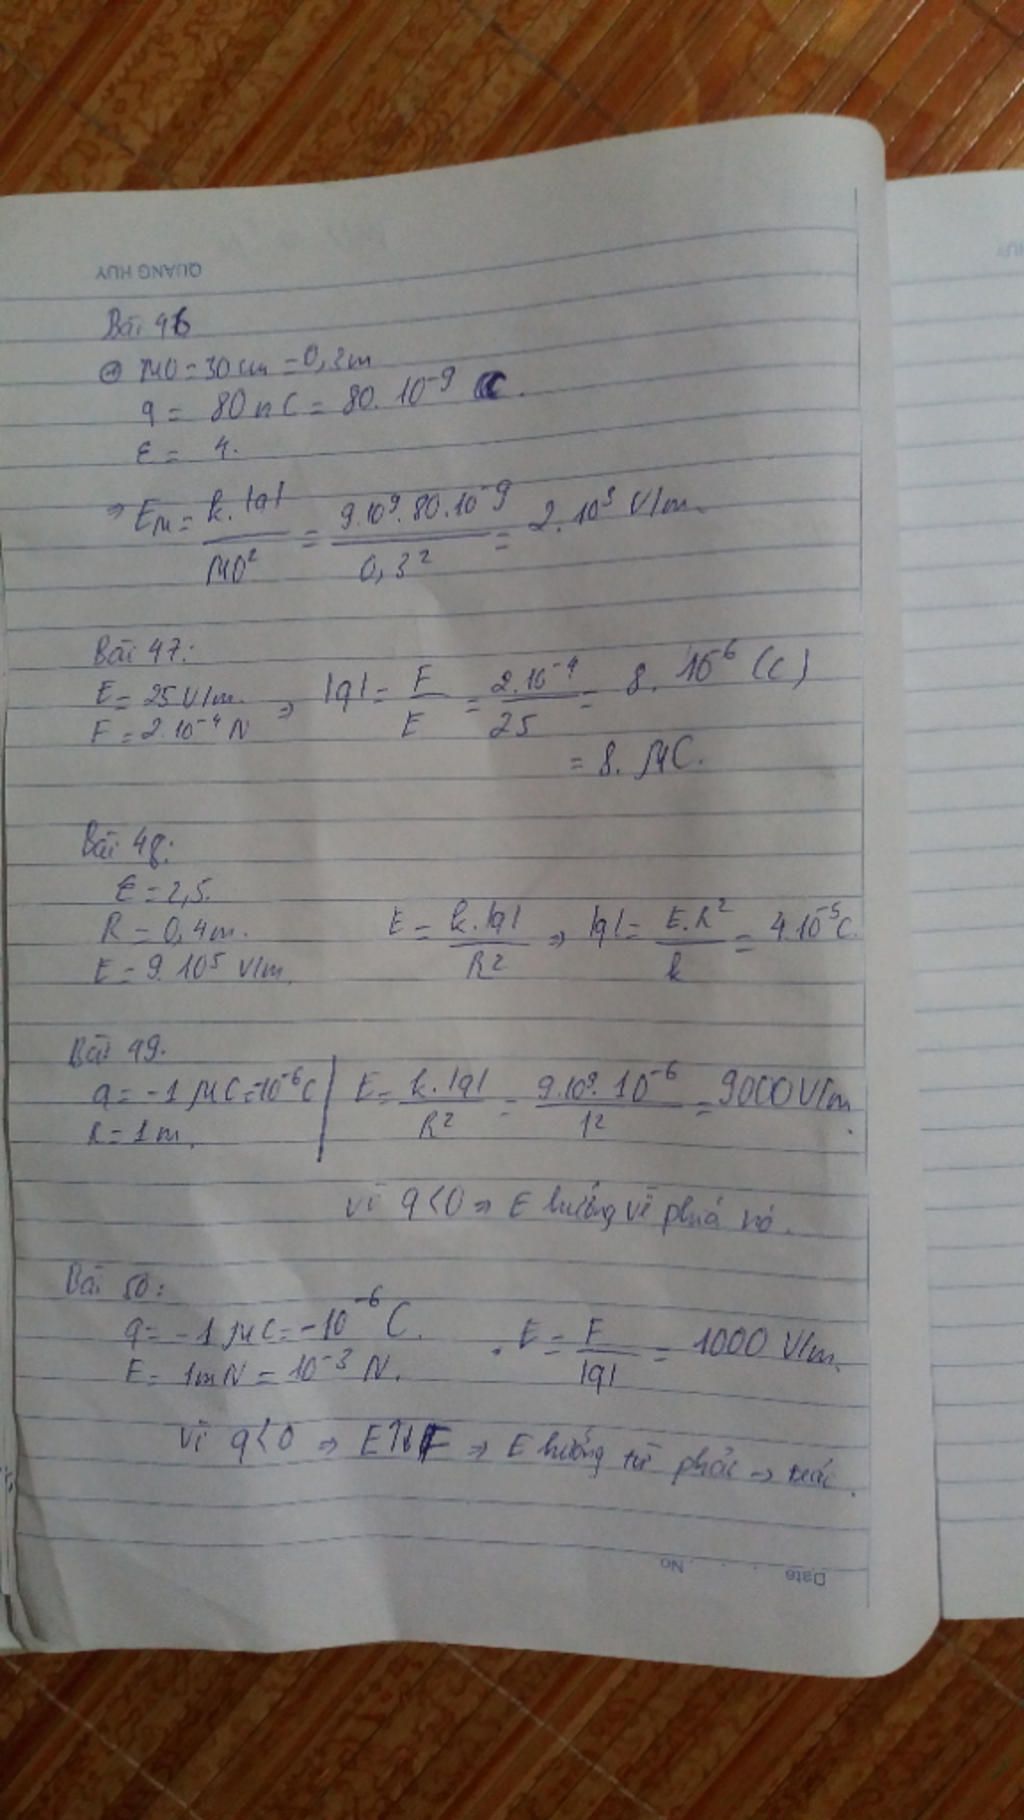 QUANG HUY
Bài 46
MO = 30cm = 0,3m
q = 80nC = 80.10⁻⁹ C.
ε = 4.
⇒ E_M = k.|q| / MO² = 9.10⁹.80.10⁻⁹ / 0,3² = 2.10³ V/m.
Bài 47:
E = 25 V/m.
F = 2.10⁻⁴ N
⇒ |q| = F / E = 2.10⁻⁴ / 25 = 8.10⁻⁶ (C)
= 8. μC.
Bài 48:
ε = 2,5.
R = 0,4m.
E = 9.10⁵ V/m.
E = k.|q| / R² ⇒ |q| = E.R² / k = 4.10⁻⁵C.
Bài 49.
q = -1 μC = -10⁻⁶C
R = 1m.
E = k.|q| / R² = 9.10⁹.10⁻⁶ / 1² = 9000 V/m.
Vì q<0 ⇒ E hướng về phía nó.
Bài 50:
q = -1 μC = -10⁻⁶ C.
F = 1mN = 10⁻³ N.
. E = F / |q| = 1000 V/m.
Vì q<0 ⇒ E↑↓F ⇒ E hướng từ phải → trái.
Date . . . No